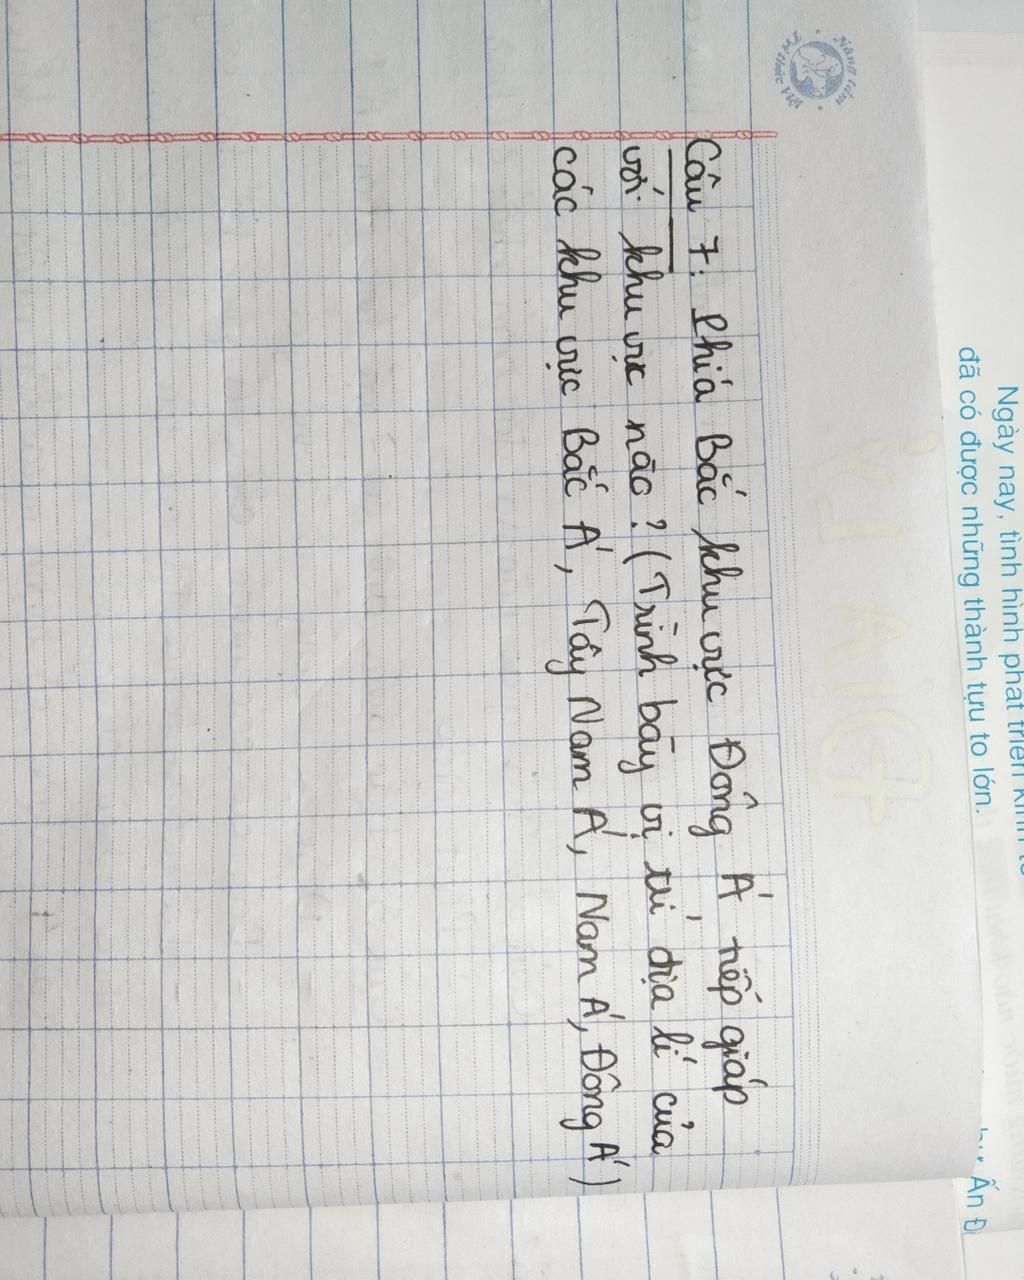 Câu 7: Phiá Bắc khu vực Đông Á tiếp giáp
với khu vực nào? (Trình bày vị trí địa lí của
các khu vực Bắc Á, Tây Nam Á, Nam Á, Đông Á)
Ngày nay, tình hình phát triển kinh tế
đã có được những thành tựu to lớn.
Ấn Đ